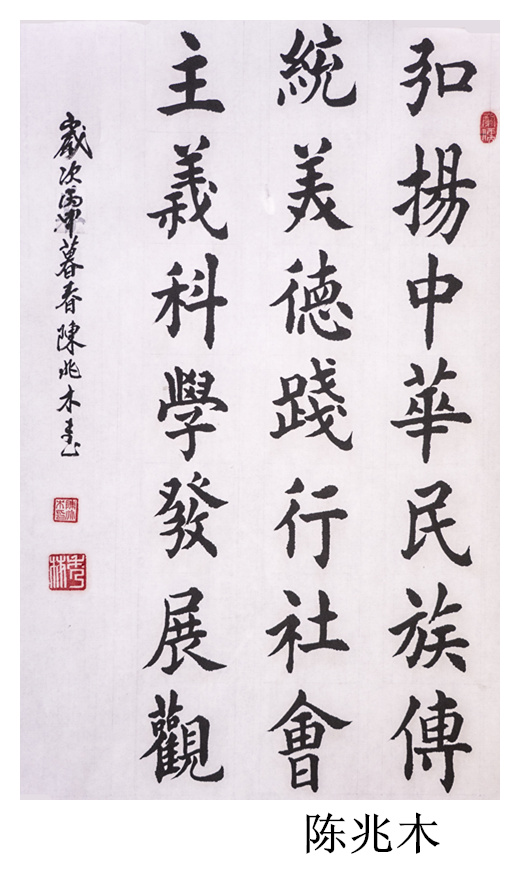 弘揚中華民族傳
統美德踐行社會
主義科學發展觀
歲次丙申暮春陳兆木書
陈兆木